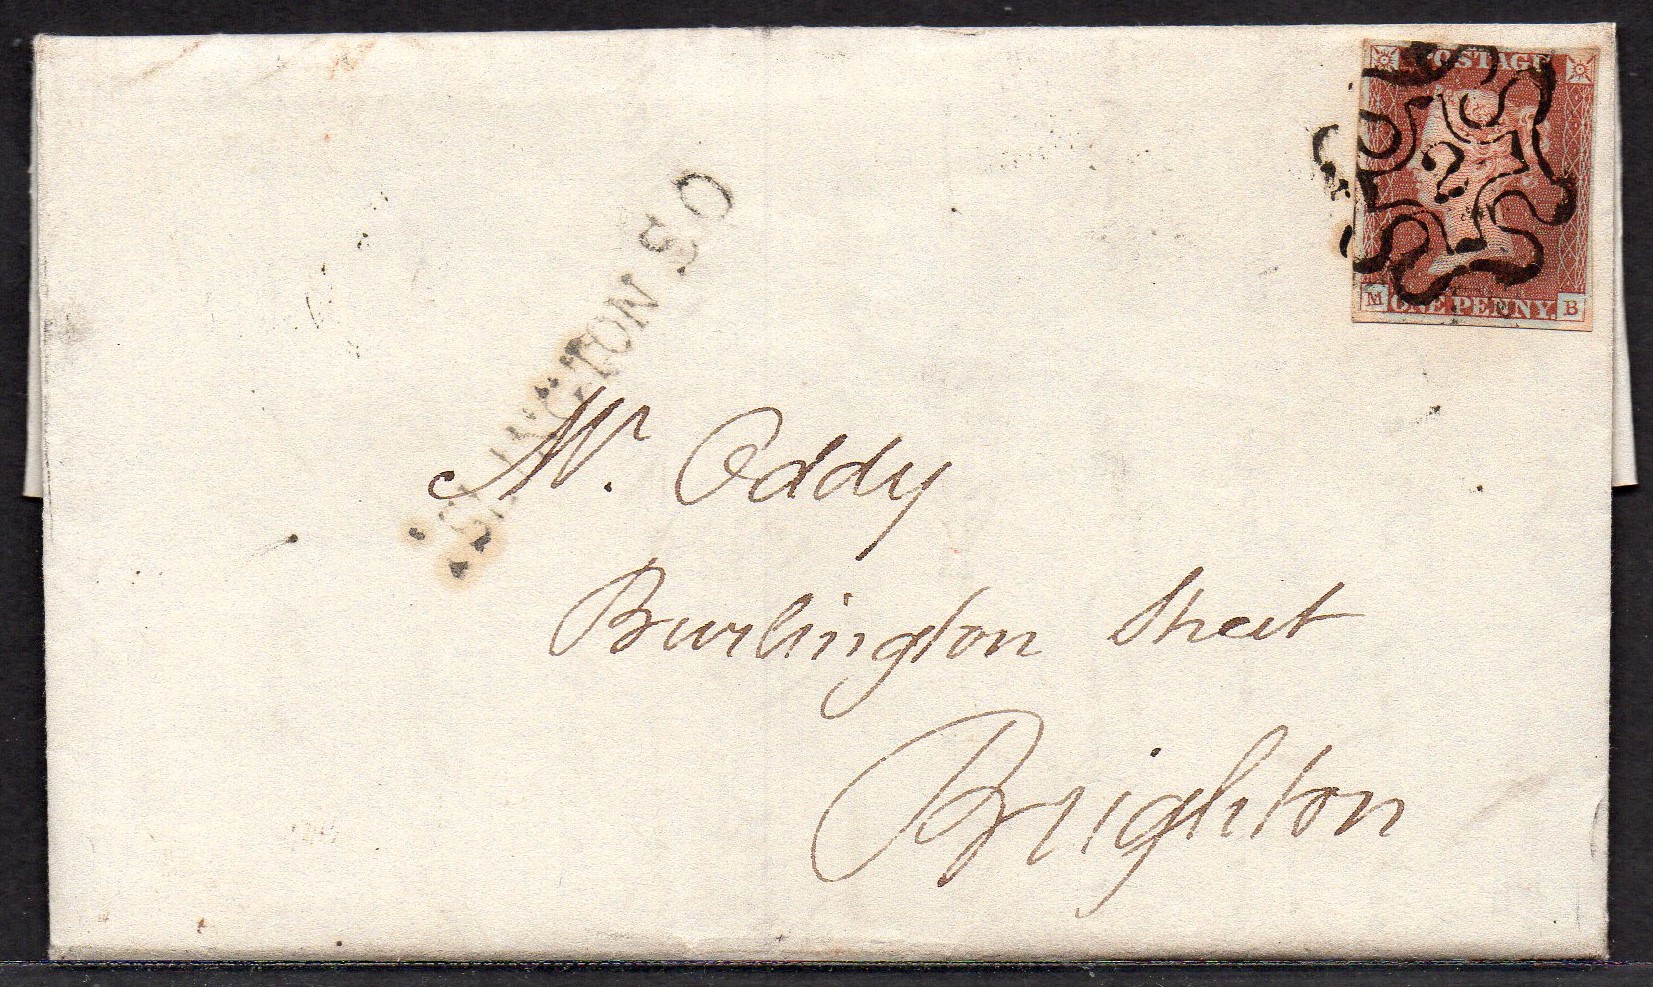 POSTAGE
2
M ONE PENNY. B
ISLINGTON S.O
Mr. Oddy
Burlington Street
Brighton